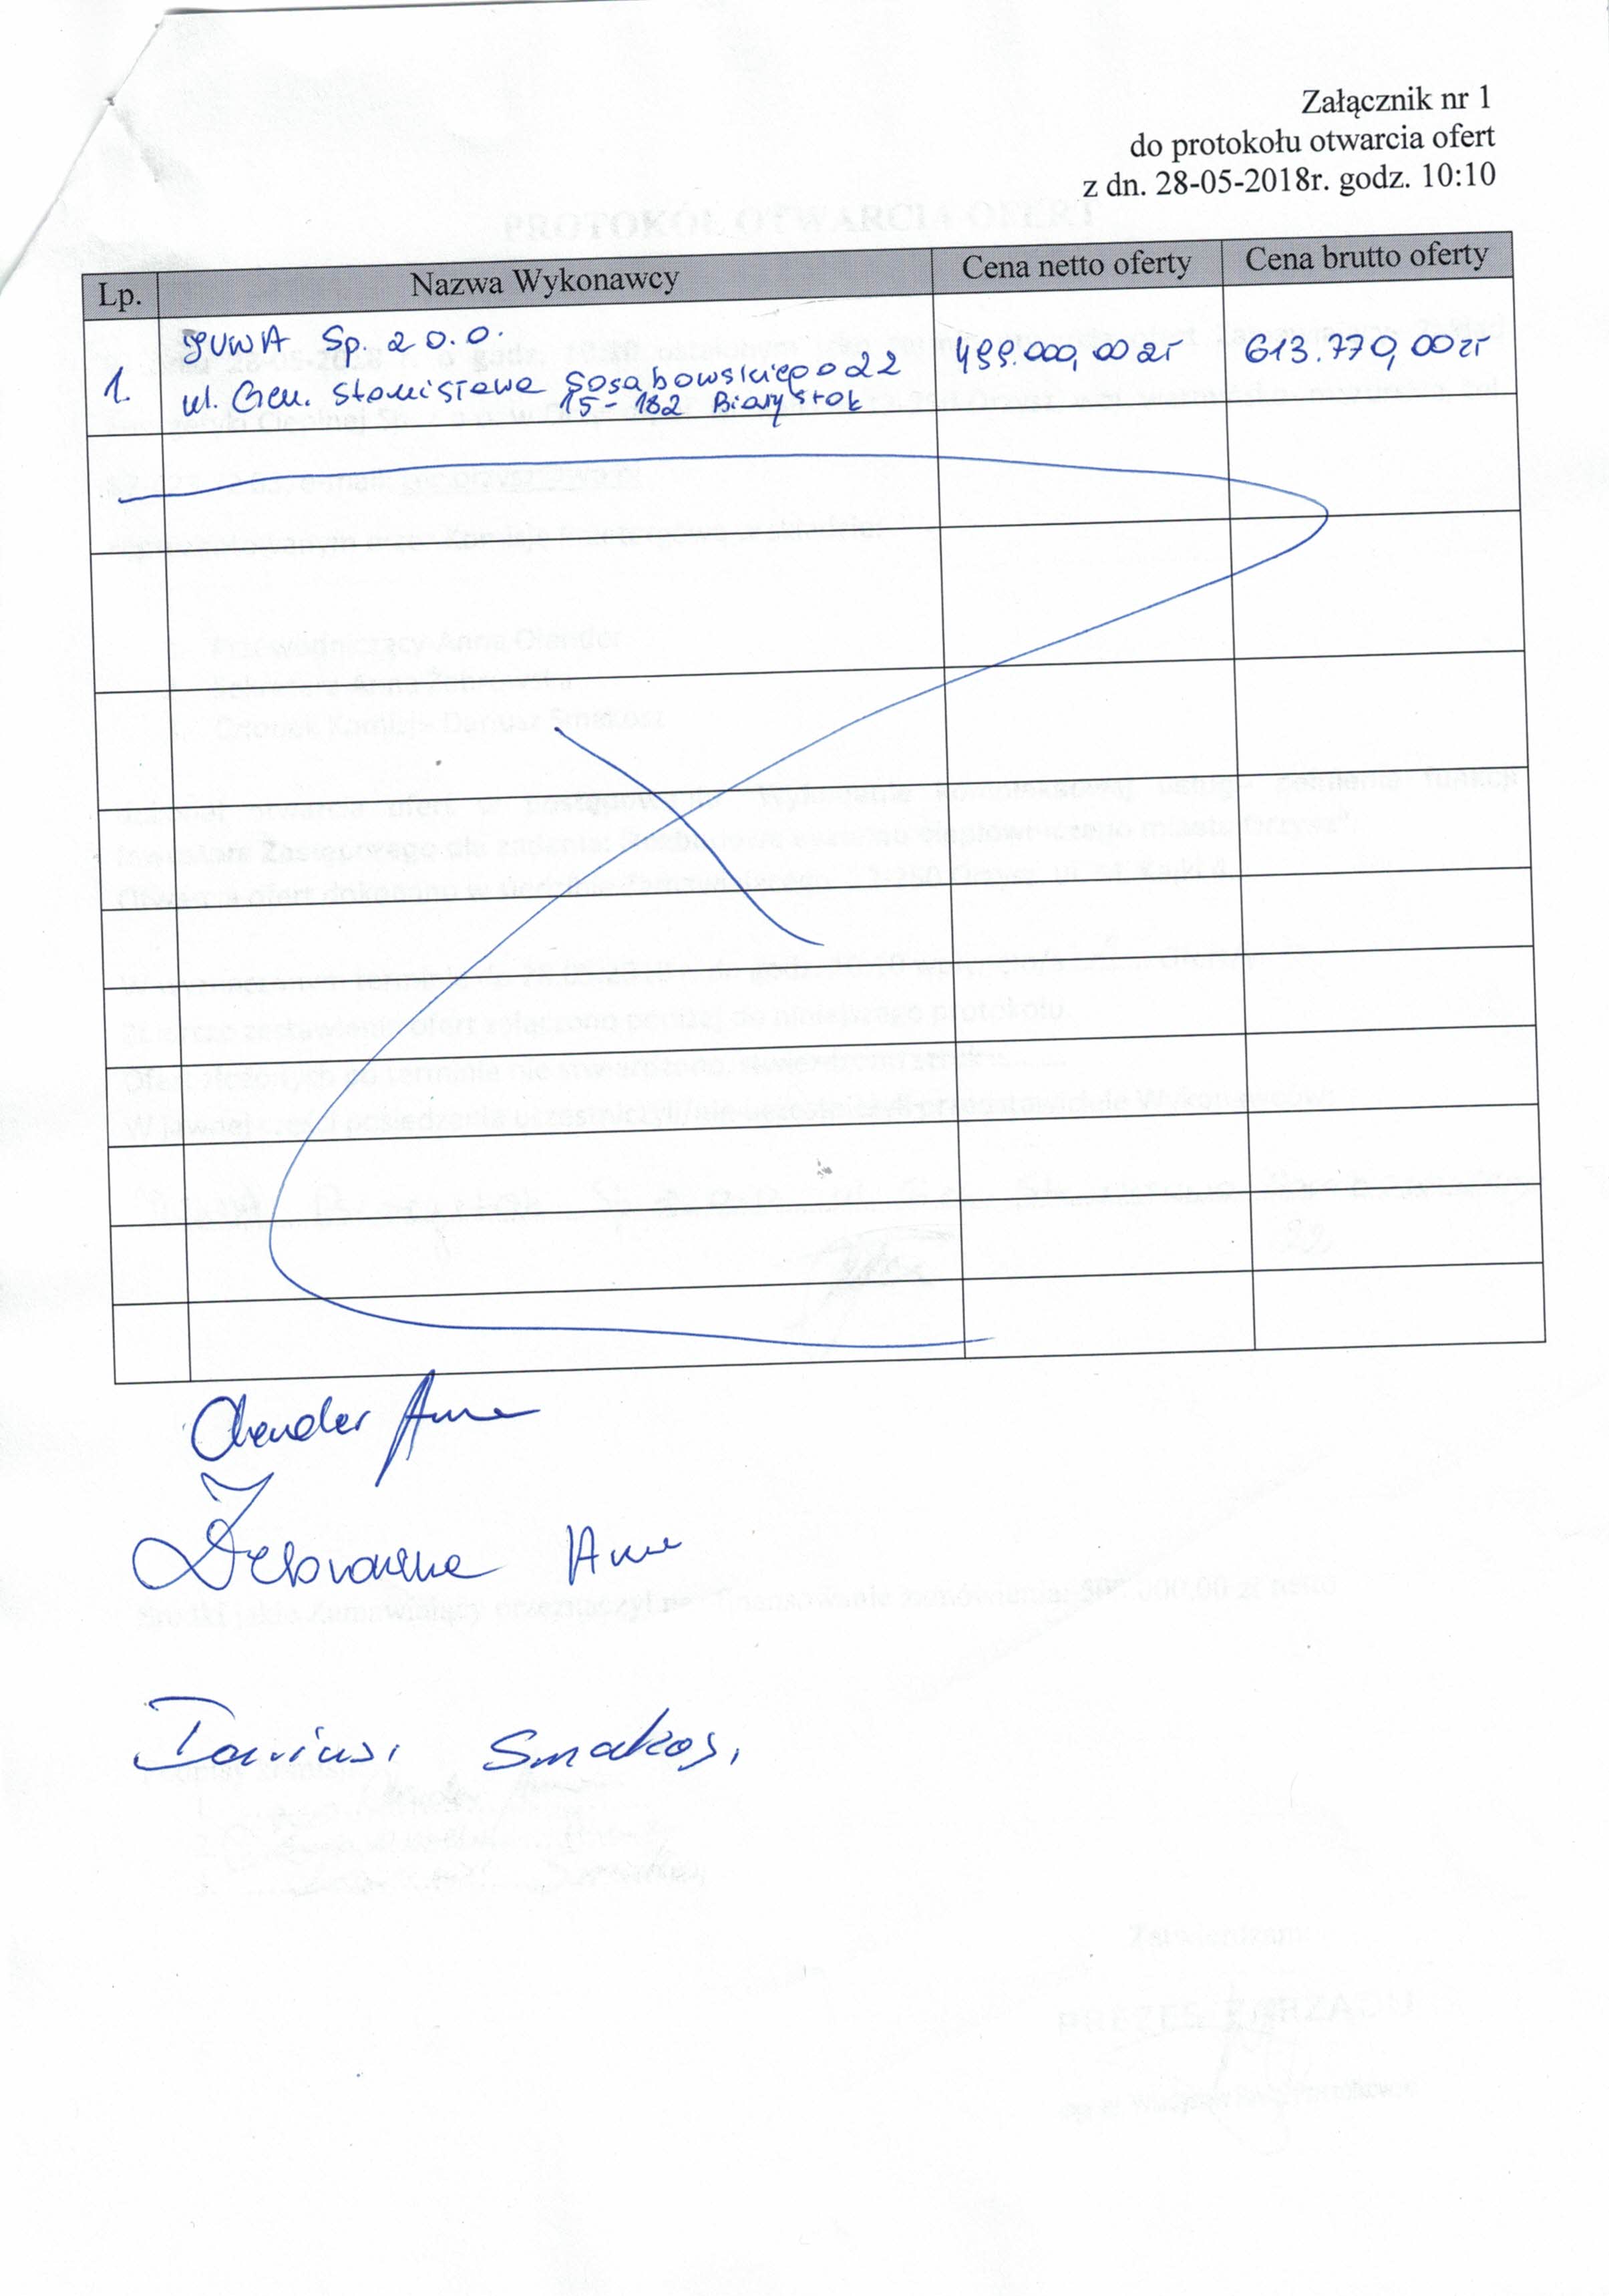 Załącznik nr 1
do protokołu otwarcia ofert
z dn. 28-05-2018r. godz. 10:10
Lp. Nazwa Wykonawcy Cena netto oferty Cena brutto oferty
1. JUWA Sp. z o.o. 499.000,00 zł 613.770,00 zł
ul. Gen. Stanisława Sosabowskiego 22
15-182 Białystok
Olender Anna
Żebrowska Anna
Dariusz Smakosz